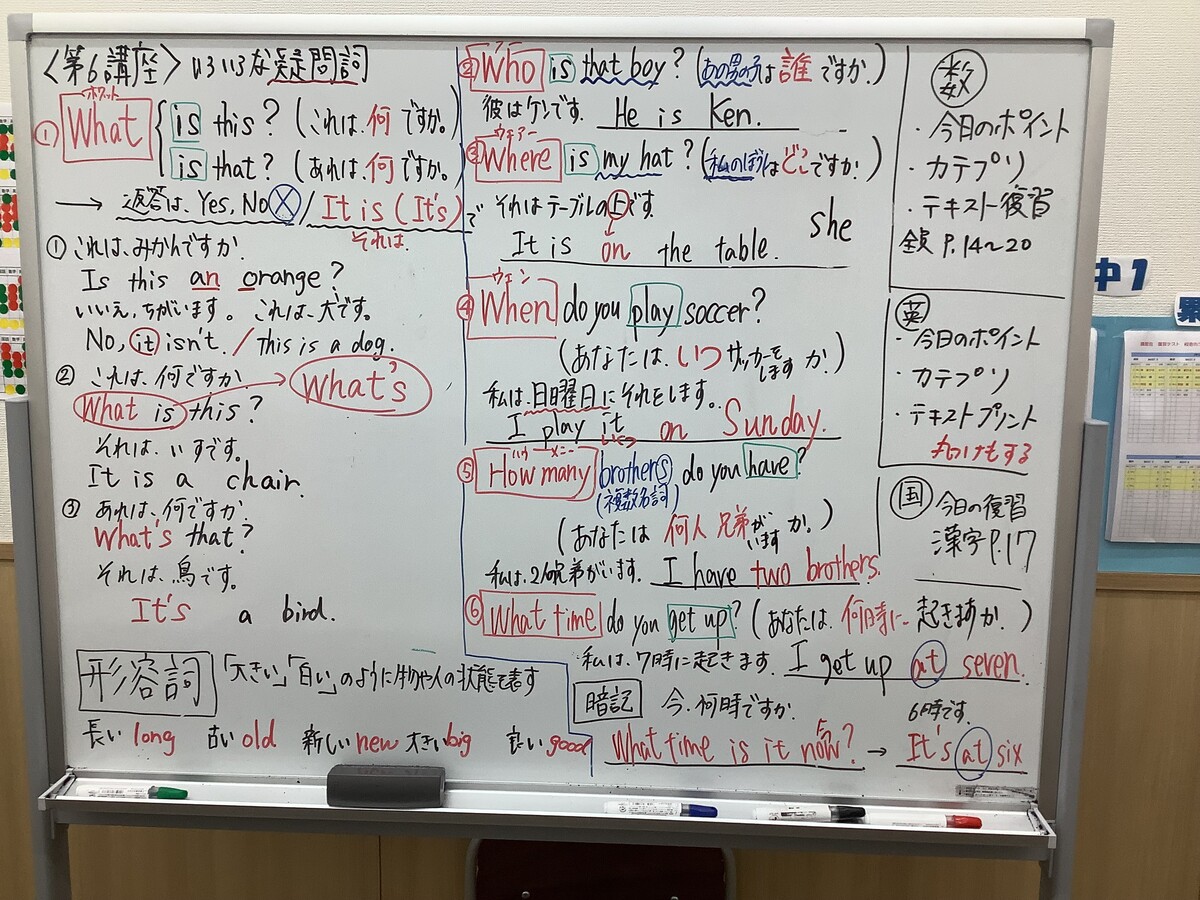 〈第6講座〉いろいろな疑問詞
ホワット
① What is this? (これは、何ですか。)
is that? (あれは、何ですか。)
→ 返答は、Yes, No X / It is (It's) で
それは
① これは、みかんですか.
Is this an orange?
いいえ、ちがいます。これは、犬です。
No, it isn't. / this is a dog.
② これは、何ですか
What is this? What's
それは、いすです。
It is a chair.
③ あれは、何ですか.
What's that?
それは、鳥です。
It's a bird.
形容詞 「大きい」「白い」のように物や人の状態を表す
長い long 古い old 新しい new 大きい big 良い good
② Who is that boy? (あの男の子は誰ですか.)
彼はケンです. He is Ken.
ウェアー
③ Where is my hat? (私のぼうしはどこですか.)
それはテーブルの上です.
she
It is on the table.
ウェン
④ When do you play soccer?
(あなたは、いつサッカーをしますか)
私は、日曜日にそれをします。
I play it on Sunday.
いくつ
ハウ メニー
⑤ How many brothers do you have?
(複数名詞)
(あなたは 何人 兄弟がいますか.)
私は、2人兄弟がいます. I have two brothers.
⑥ What time do you get up? (あなたは、何時に起きますか.)
私は、7時に起きます. I get up at seven.
暗記 今、何時ですか. 6時です.
What time is it now? → It's at six
数
・今日のポイント
・カテプリ
・テキスト復習
全員 P.14~20
英
・今日のポイント
・カテプリ
・テキストプリント
丸つけもする
国 今日の復習
漢字P.17
中1